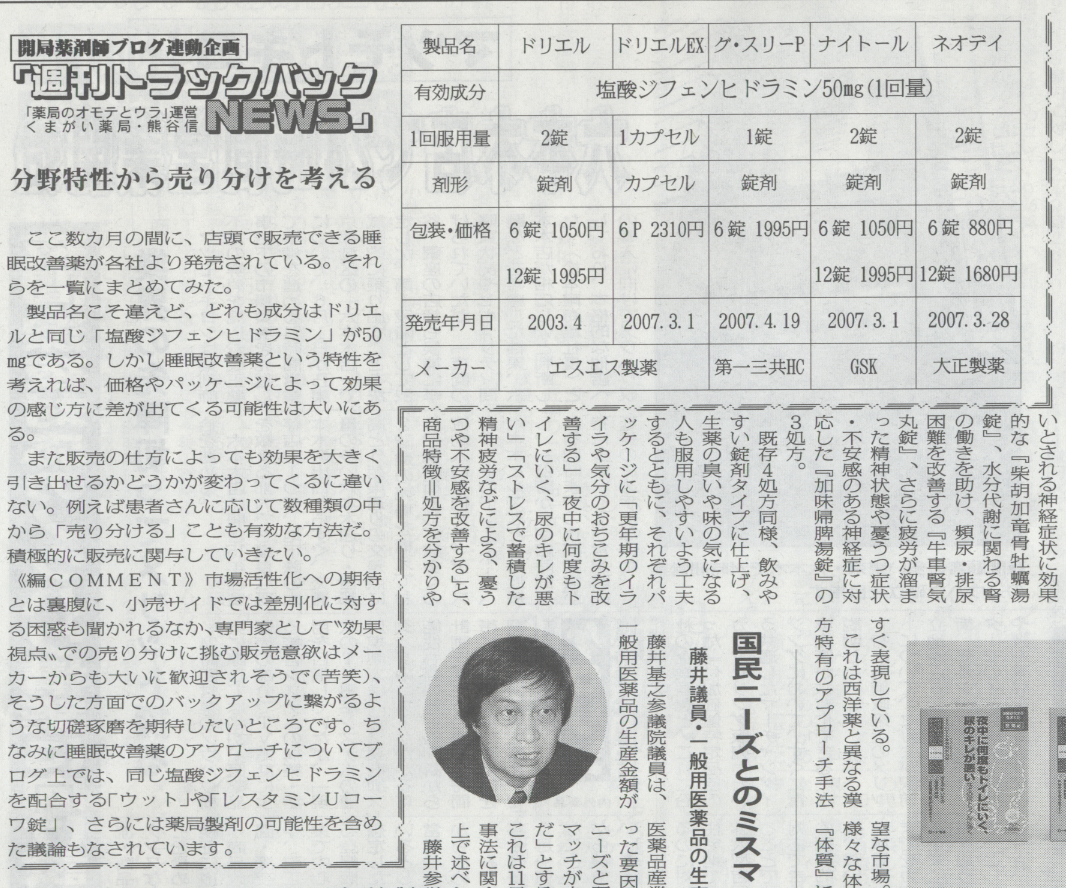 開局薬剤師ブログ連動企画
『週刊トラックバック
NEWS』
「薬局のオモテとウラ」運営
くまがい薬局・熊谷信
分野特性から売り分けを考える
ここ数カ月の間に、店頭で販売できる睡
眠改善薬が各社より発売されている。それ
らを一覧にまとめてみた。
製品名こそ違えど、どれも成分はドリエ
ルと同じ「塩酸ジフェンヒドラミン」が50
mgである。しかし睡眠改善薬という特性を
考えれば、価格やパッケージによって効果
の感じ方に差が出てくる可能性は大いにあ
る。
また販売の仕方によっても効果を大きく
引き出せるかどうかが変わってくるに違い
ない。例えば患者さんに応じて数種類の中
から「売り分ける」ことも有効な方法だ。
積極的に販売に関与していきたい。
《編COMMENT》市場活性化への期待
とは裏腹に、小売サイドでは差別化に対す
る困惑も聞かれるなか、専門家として〝効果
視点〟での売り分けに挑む販売意欲はメー
カーからも大いに歓迎されそうで(苦笑)、
そうした方面でのバックアップに繋がるよ
うな切磋琢磨を期待したいところです。ち
なみに睡眠改善薬のアプローチについてブ
ログ上では、同じ塩酸ジフェンヒドラミン
を配合する「ウット」や「レスタミンUコー
ワ錠」、さらには薬局製剤の可能性を含め
た議論もなされています。
製品名 ドリエル ドリエルEX グ・スリーP ナイトール ネオデイ
有効成分 塩酸ジフェンヒドラミン50mg(1回量)
1回服用量 2錠 1カプセル 1錠 2錠 2錠
剤形 錠剤 カプセル 錠剤 錠剤 錠剤
包装・価格 6錠 1050円 6P 2310円 6錠 1995円 6錠 1050円 6錠 880円
12錠 1995円 12錠 1995円 12錠 1680円
発売年月日 2003.4 2007.3.1 2007.4.19 2007.3.1 2007.3.28
メーカー エスエス製薬 第一三共HC GSK 大正製薬
いとされる神経症状に効果
的な『柴胡加竜骨牡蠣湯
錠』、水分代謝に関わる腎
の働きを助け、頻尿・排尿
困難を改善する『牛車腎気
丸錠』、さらに疲労が溜ま
った精神状態や憂うつ症状
・不安感のある神経症に対
応した『加味帰脾湯錠』の
3処方。
既存4処方同様、飲みや
すい錠剤タイプに仕上げ、
生薬の臭いや味の気になる
人も服用しやすいよう工夫
するとともに、それぞれパ
ッケージに「更年期のイラ
イラや気分のおちこみを改
善する」「夜中に何度もト
イレにいく、尿のキレが悪
い」「ストレスで蓄積した
精神疲労などによる、憂う
つや不安感を改善する」と、
商品特徴＝処方を分かりや
すく表現している。
これは西洋薬と異なる漢
方特有のアプローチ手法
望な市場。
様々な体
『体質』に
夜中に何度もトイレにいく、
尿のキレが悪い
国民ニーズとのミスマ
藤井議員・一般用医薬品の生産
藤井基之参議院議員は、
一般用医薬品の生産金額が
医薬品産業
った要因
ニーズと
マッチが
だ」とする
これは11
事法に関
上で述べ
藤井参